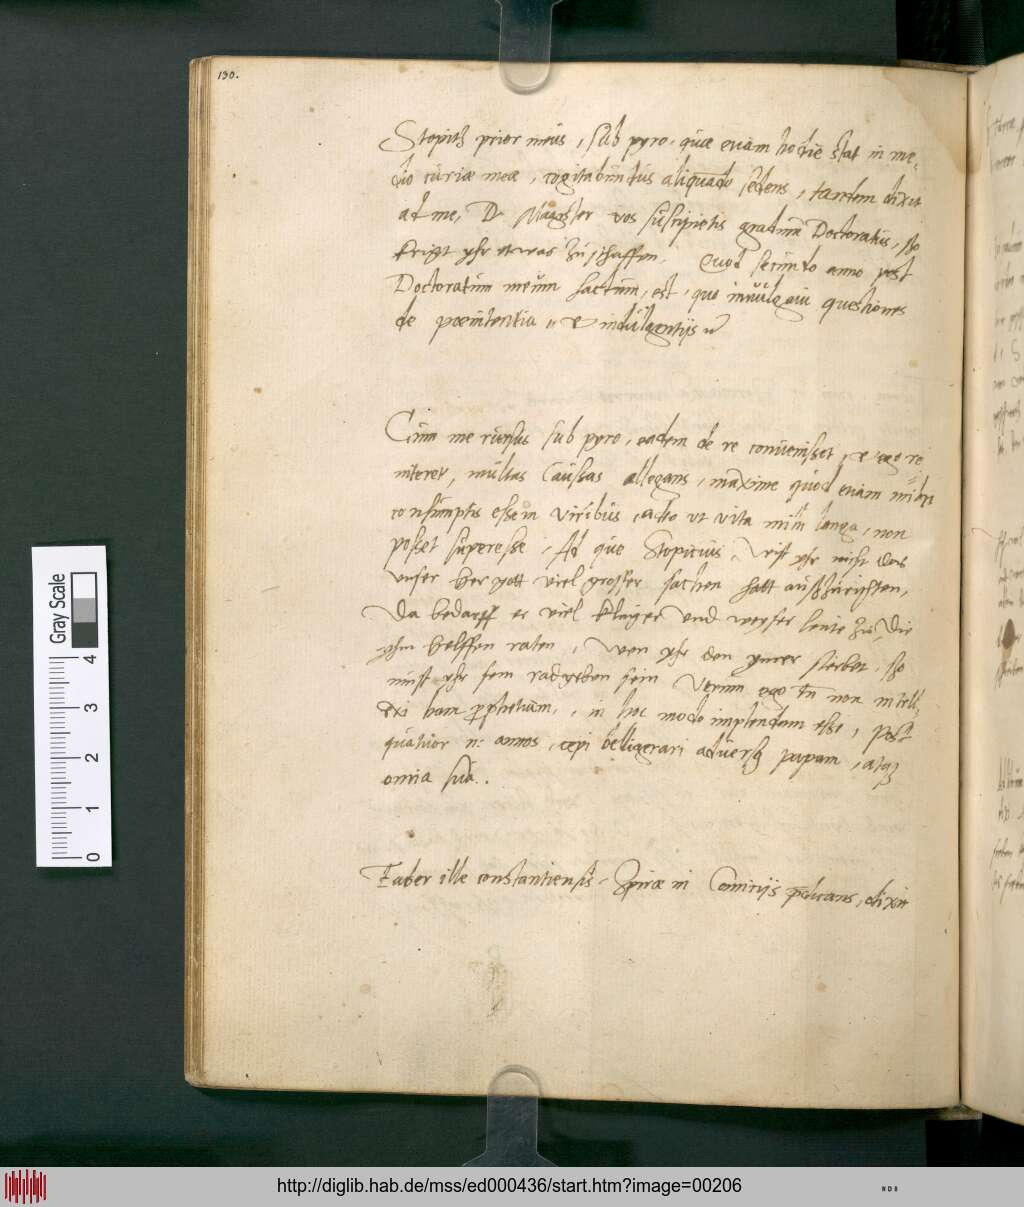 130.
Stopitz prior meus, sub pyro, quae etiam hodie stat in me-
dio curiae meae, cogitabundus aliquando sedens, tandem dixit
ad me, D. Magister vos suscipietis gradum Doctoratus, so
kriegt yhr etwas zu schaffen. Quod secundo anno post
Doctoratum meum factum, est, quo invulgavi questiones
de poenitentia, et indulgentijs
Cum me rursus sub pyro, eadem de re convenisset, et ego re
niterer, multas Caussas allegans, maxime quod etiam mihi
consumptus essem viribus, adeo ut vita mihi longa, non
posset superesse, Ad que Stopicius, Wist yhr nicht das
unser Her gott viel grosser sachen hatt außzurichten,
Da bedarff er viel kluger und weyser leute zu, Die
yhm helffen raten, Wen yhr den ymer sterbet, so
must yhr sein radgeben sein Verum ego tum non intell-
exi hanc prophetiam, in hoc modo implendam esse, Post
quatuor n: annos, cepi belligerari adversus papam, atque
omnia sua.
Faber ille constantiensis, Spirae in Comitijs praedicans, dixit
Gray Scale
4
3
2
1
0
http://diglib.hab.de/mss/ed000436/start.htm?image=00206